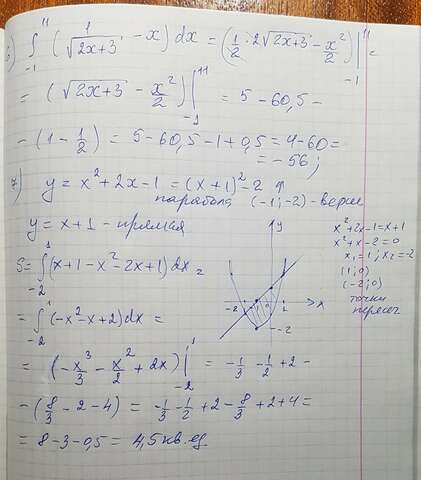 6) ∫₋₁¹¹ (1/√(2x+3) - x) dx = (1/2 · 2√(2x+3) - x²/2) |₋₁¹¹ =
= (√(2x+3) - x²/2) |₋₁¹¹ = 5 - 60,5 -
- (1 - 1/2) = 5 - 60,5 - 1 + 0,5 = 4 - 60 =
= -56;
7) y = x² + 2x - 1 = (x+1)² - 2 ↑
парабола (-1; -2) - верш
y = x + 1 - прямая
x² + 2x - 1 = x + 1
x² + x - 2 = 0
x₁ = 1; x₂ = -2
(1; 0)
(-2; 0)
точки
пересеч
y
-2
1
x
-2
S = ∫₋₂¹ (x + 1 - x² - 2x + 1) dx =
= ∫₋₂¹ (-x² - x + 2) dx =
= (-x³/3 - x²/2 + 2x) |₋₂¹ = -1/3 - 1/2 + 2 -
- (8/3 - 2 - 4) = -1/3 - 1/2 + 2 - 8/3 + 2 + 4 =
= 8 - 3 - 0,5 = 4,5 кв. ед.